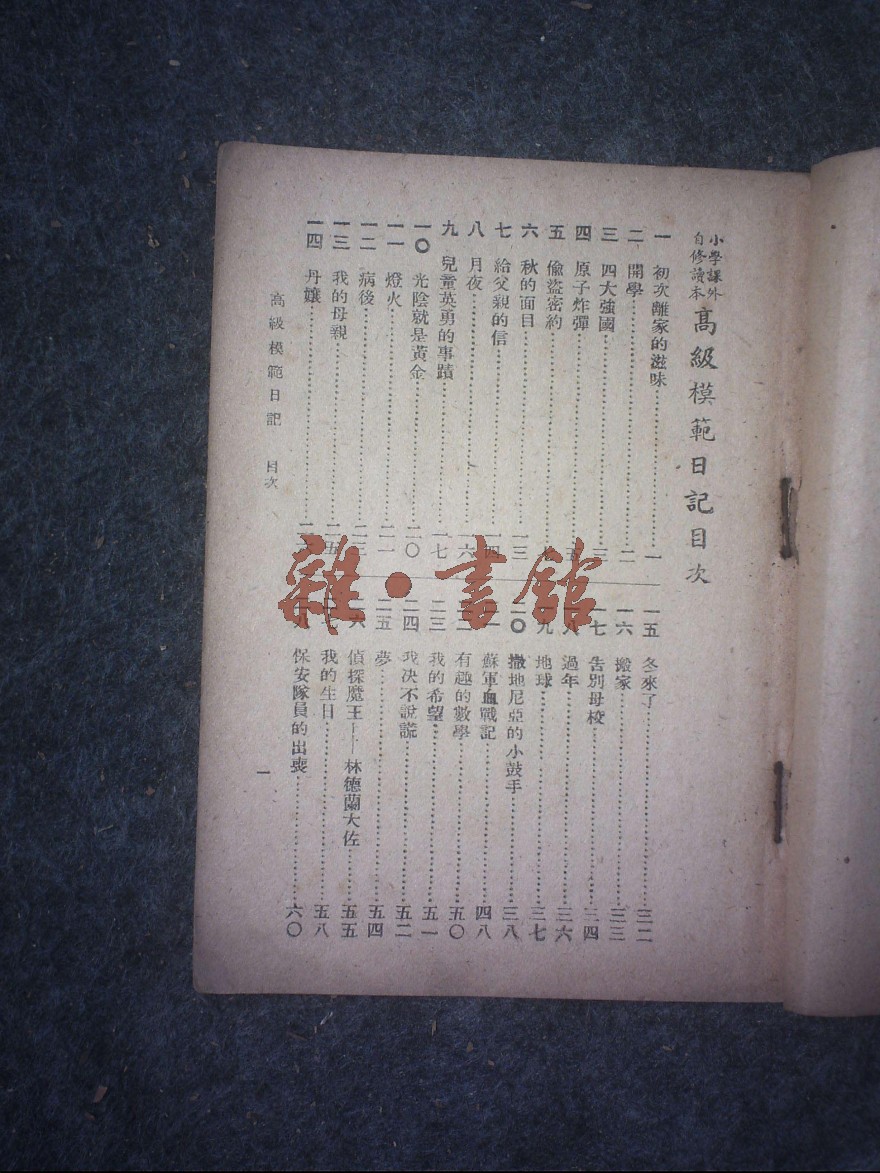 小學課外
自修讀本
高級模範日記目次
一 初次離家的滋味 一
二 開學 二
三 四大強國 三
四 原子炸彈 五
五 偷盜密約
六 秋的面目 一三
七 給父親的信 一四
八 月夜 一六
九 兒童英勇的事蹟 一七
一〇 光陰就是黃金 二〇
一一 燈火 二一
一二 病後 二三
一三 我的母親 二五
一四 丹孃
一五 冬來了 三二
一六 搬家 三三
一七 告別母校 三四
一八 過年 三六
一九 地球 三七
二〇 撒地尼亞的小鼓手 三八
二一 蘇軍血戰記 四八
二二 有趣的數學 五〇
二三 我的希望 五一
二四 我决不說謊 五二
二五 夢 五四
二六 偵探魔王——林德蘭大佐 五五
我的生日 五八
保安隊員的出喪 六〇
高級模範日記 目次
一
雜·書館